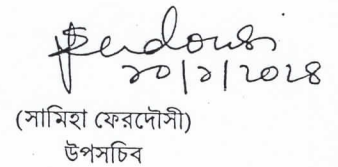 Sferdousi
২০/১/২০২৪
(সামিহা ফেরদৌসী)
উপসচিব